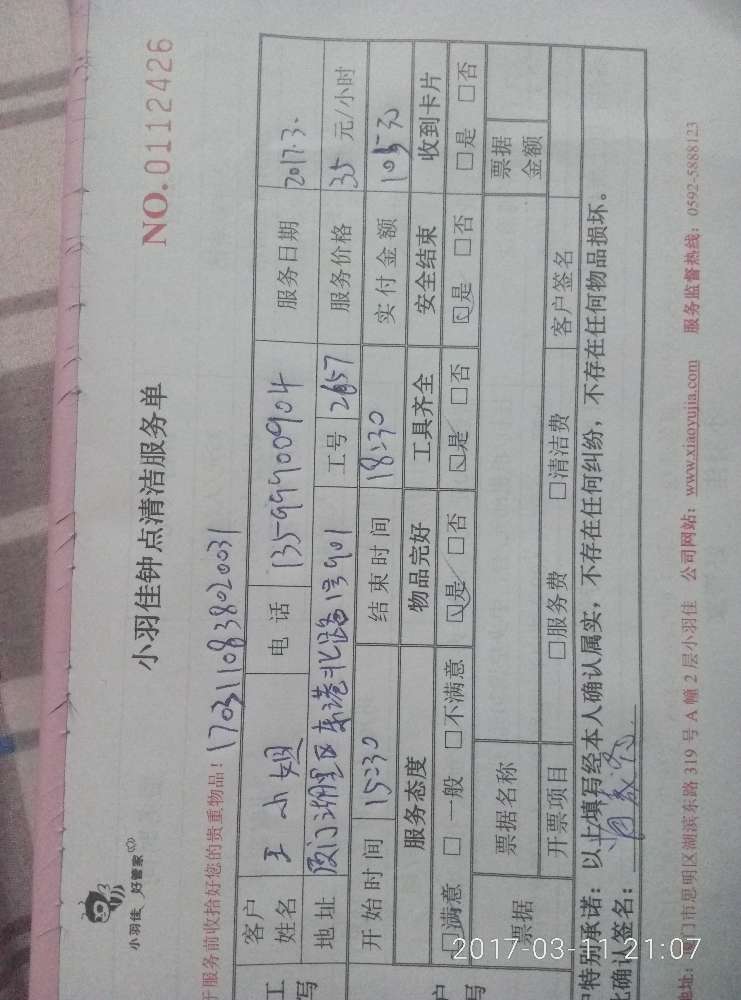 小羽佳 好管家
小羽佳钟点清洁服务单
NO.0112426
于服务前收拾好您的贵重物品!
1703110838020031
客户姓名 王小姐 电话 13599900904 服务日期 2017.3.
地址 厦门湖里区东港北路 901 工号 2657 服务价格 35 元/小时
开始时间 15:30 结束时间 18:30 实付金额 105元
服务态度 物品完好 工具齐全 安全结束 收到卡片
☑满意 □一般 □不满意 ☑是 □否 ☑是 □否 ☑是 □否 □是 □否
票据 票据名称 票据金额
开票项目 □服务费 □清洁费 客户签名
特别承诺:以上填写经本人确认属实,不存在任何纠纷,不存在任何物品损坏。
确认签名:
地址: 门市思明区湖滨东路 319 号 A 幢 2 层小羽佳 公司网站:www.xiaoyujia.com 服务监督热线:0592-5888123
2017-03-11 21:07